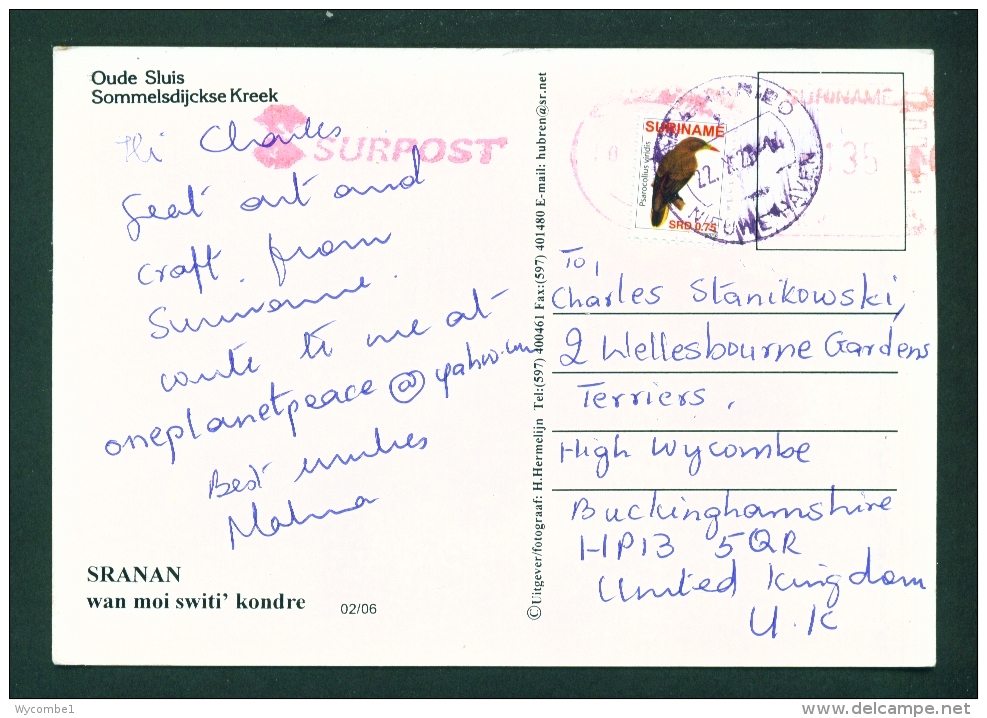 Oude Sluis
Sommelsdijckse Kreek
Hi Charles
SURPOST
Great art and
craft from
Suriname.
write to me at
oneplanetpeace@yahoo.com
Best wishes
SRANAN
wan moi switi' kondre
02/06
©Uitgever/fotograaf: H.Hermelijn Tel:(597) 400461 Fax:(597) 401480 E-mail: hubren@sr.net
SURINAME
Psarocolius viridis
SRD 0.75
PARAMARIBO
NIEUWE HAVEN
135
To,
Charles Stanikowski,
2 Wellesbourne Gardens
Terriers,
High Wycombe
Buckinghamshire
HP13 5QR
United Kingdom
U.K
Wycombe1
delcampe.net